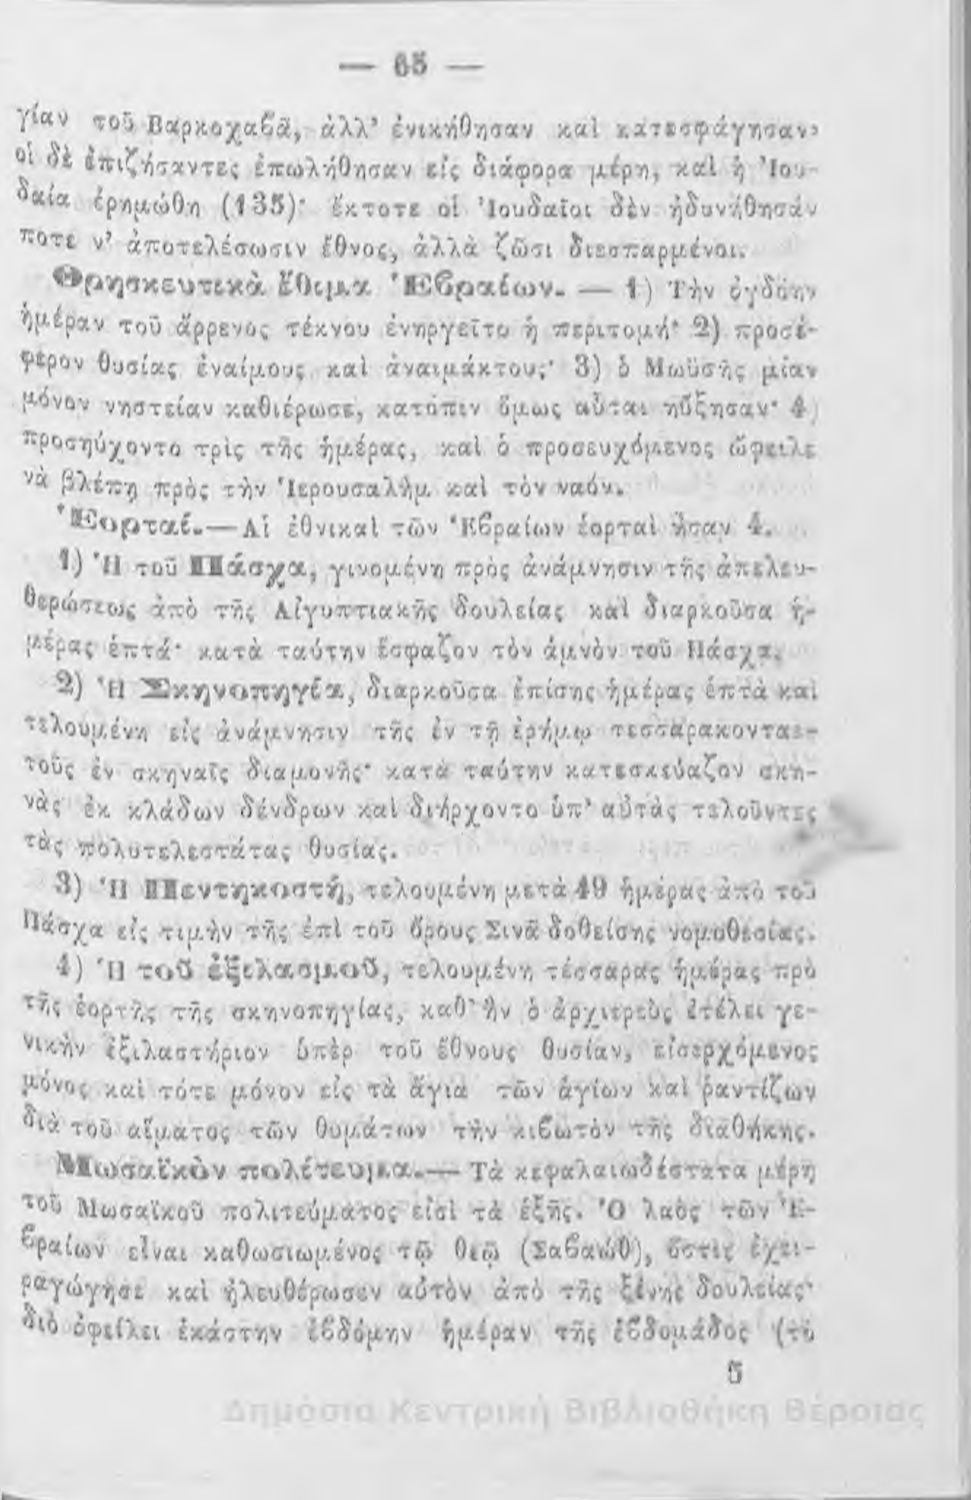 — 65 —
γίαν τοῦ Βαρκοχαβᾶ, ἀλλ’ ἐνικήθησαν καὶ κατεσφάγησαν·
οἱ δὲ ἐπιζήσαντες ἐπωλήθησαν εἰς διάφορα μέρη, καὶ ἡ Ἰου-
δαία ἐρημώθη (135)· ἔκτοτε οἱ Ἰουδαῖοι δὲν ἠδυνήθησάν
ποτε ν’ ἀποτελέσωσιν ἔθνος, ἀλλὰ ζῶσι διεσπαρμένοι.
Θρησκευτικὰ ἔθιμα Ἑβραίων. — 1) Τὴν ὀγδόην
ἡμέραν τοῦ ἄρρενος τέκνου ἐνηργεῖτο ἡ περιτομή· 2) προσέ-
φερον θυσίας ἐναίμους καὶ ἀναιμάκτους· 3) ὁ Μωϋσῆς μίαν
μόνον νηστείαν καθιέρωσε, κατόπιν ὅμως αὗται ηὔξησαν· 4)
προσηύχοντο τρὶς τῆς ἡμέρας, καὶ ὁ προσευχόμενος ὤφειλε
νὰ βλέπῃ πρὸς τὴν Ἱερουσαλὴμ καὶ τὸν ναόν.
Ἑορταί.— Αἱ ἐθνικαὶ τῶν Ἑβραίων ἑορταὶ ἦσαν 4.
1) Ἡ τοῦ Πάσχα, γινομένη πρὸς ἀνάμνησιν τῆς ἀπελευ-
θερώσεως ἀπὸ τῆς Αἰγυπτιακῆς δουλείας καὶ διαρκοῦσα ἡ-
μέρας ἑπτά· κατὰ ταύτην ἔσφαζον τὸν ἀμνὸν τοῦ Πάσχα.
2) Ἡ Σκηνοπηγία, διαρκοῦσα ἐπίσης ἡμέρας ἑπτὰ καὶ
τελουμένη εἰς ἀνάμνησιν τῆς ἐν τῇ ἐρήμῳ τεσσαρακονταε-
τοῦς ἐν σκηναῖς διαμονῆς· κατὰ ταύτην κατεσκεύαζον σκη-
νὰς ἐκ κλάδων δένδρων καὶ διήρχοντο ὑπ’ αὐτὰς τελοῦντες
τὰς πολυτελεστάτας θυσίας.
3) Ἡ Πεντηκοστή, τελουμένη μετὰ 49 ἡμέρας ἀπὸ τοῦ
Πάσχα εἰς τιμὴν τῆς ἐπὶ τοῦ ὄρους Σινᾶ δοθείσης νομοθεσίας.
4) Ἡ τοῦ ἐξιλασμοῦ, τελουμένη τέσσαρας ἡμέρας πρὸ
τῆς ἑορτῆς τῆς σκηνοπηγίας, καθ’ ἣν ὁ ἀρχιερεὺς ἐτέλει γε-
νικὴν ἐξιλαστήριον ὑπὲρ τοῦ ἔθνους θυσίαν, εἰσερχόμενος
μόνος καὶ τότε μόνον εἰς τὰ ἅγια τῶν ἁγίων καὶ ῥαντίζων
διὰ τοῦ αἵματος τῶν θυμάτων τὴν κιβωτὸν τῆς διαθήκης.
Μωσαϊκὸν πολίτευμα.— Τὰ κεφαλαιωδέστατα μέρη
τοῦ Μωσαϊκοῦ πολιτεύματος εἰσὶ τὰ ἑξῆς. Ὁ λαὸς τῶν Ἑ-
βραίων εἶναι καθωσιωμένος τῷ Θεῷ (Σαβαώθ), ὅστις ἐχει-
ραγώγησε καὶ ἠλευθέρωσεν αὐτὸν ἀπὸ τῆς ξένης δουλείας·
διὸ ὀφείλει ἑκάστην ἑβδόμην ἡμέραν τῆς ἑβδομάδος (τὸ
5
Δημόσια Κεντρική Βιβλιοθήκη Βέροιας